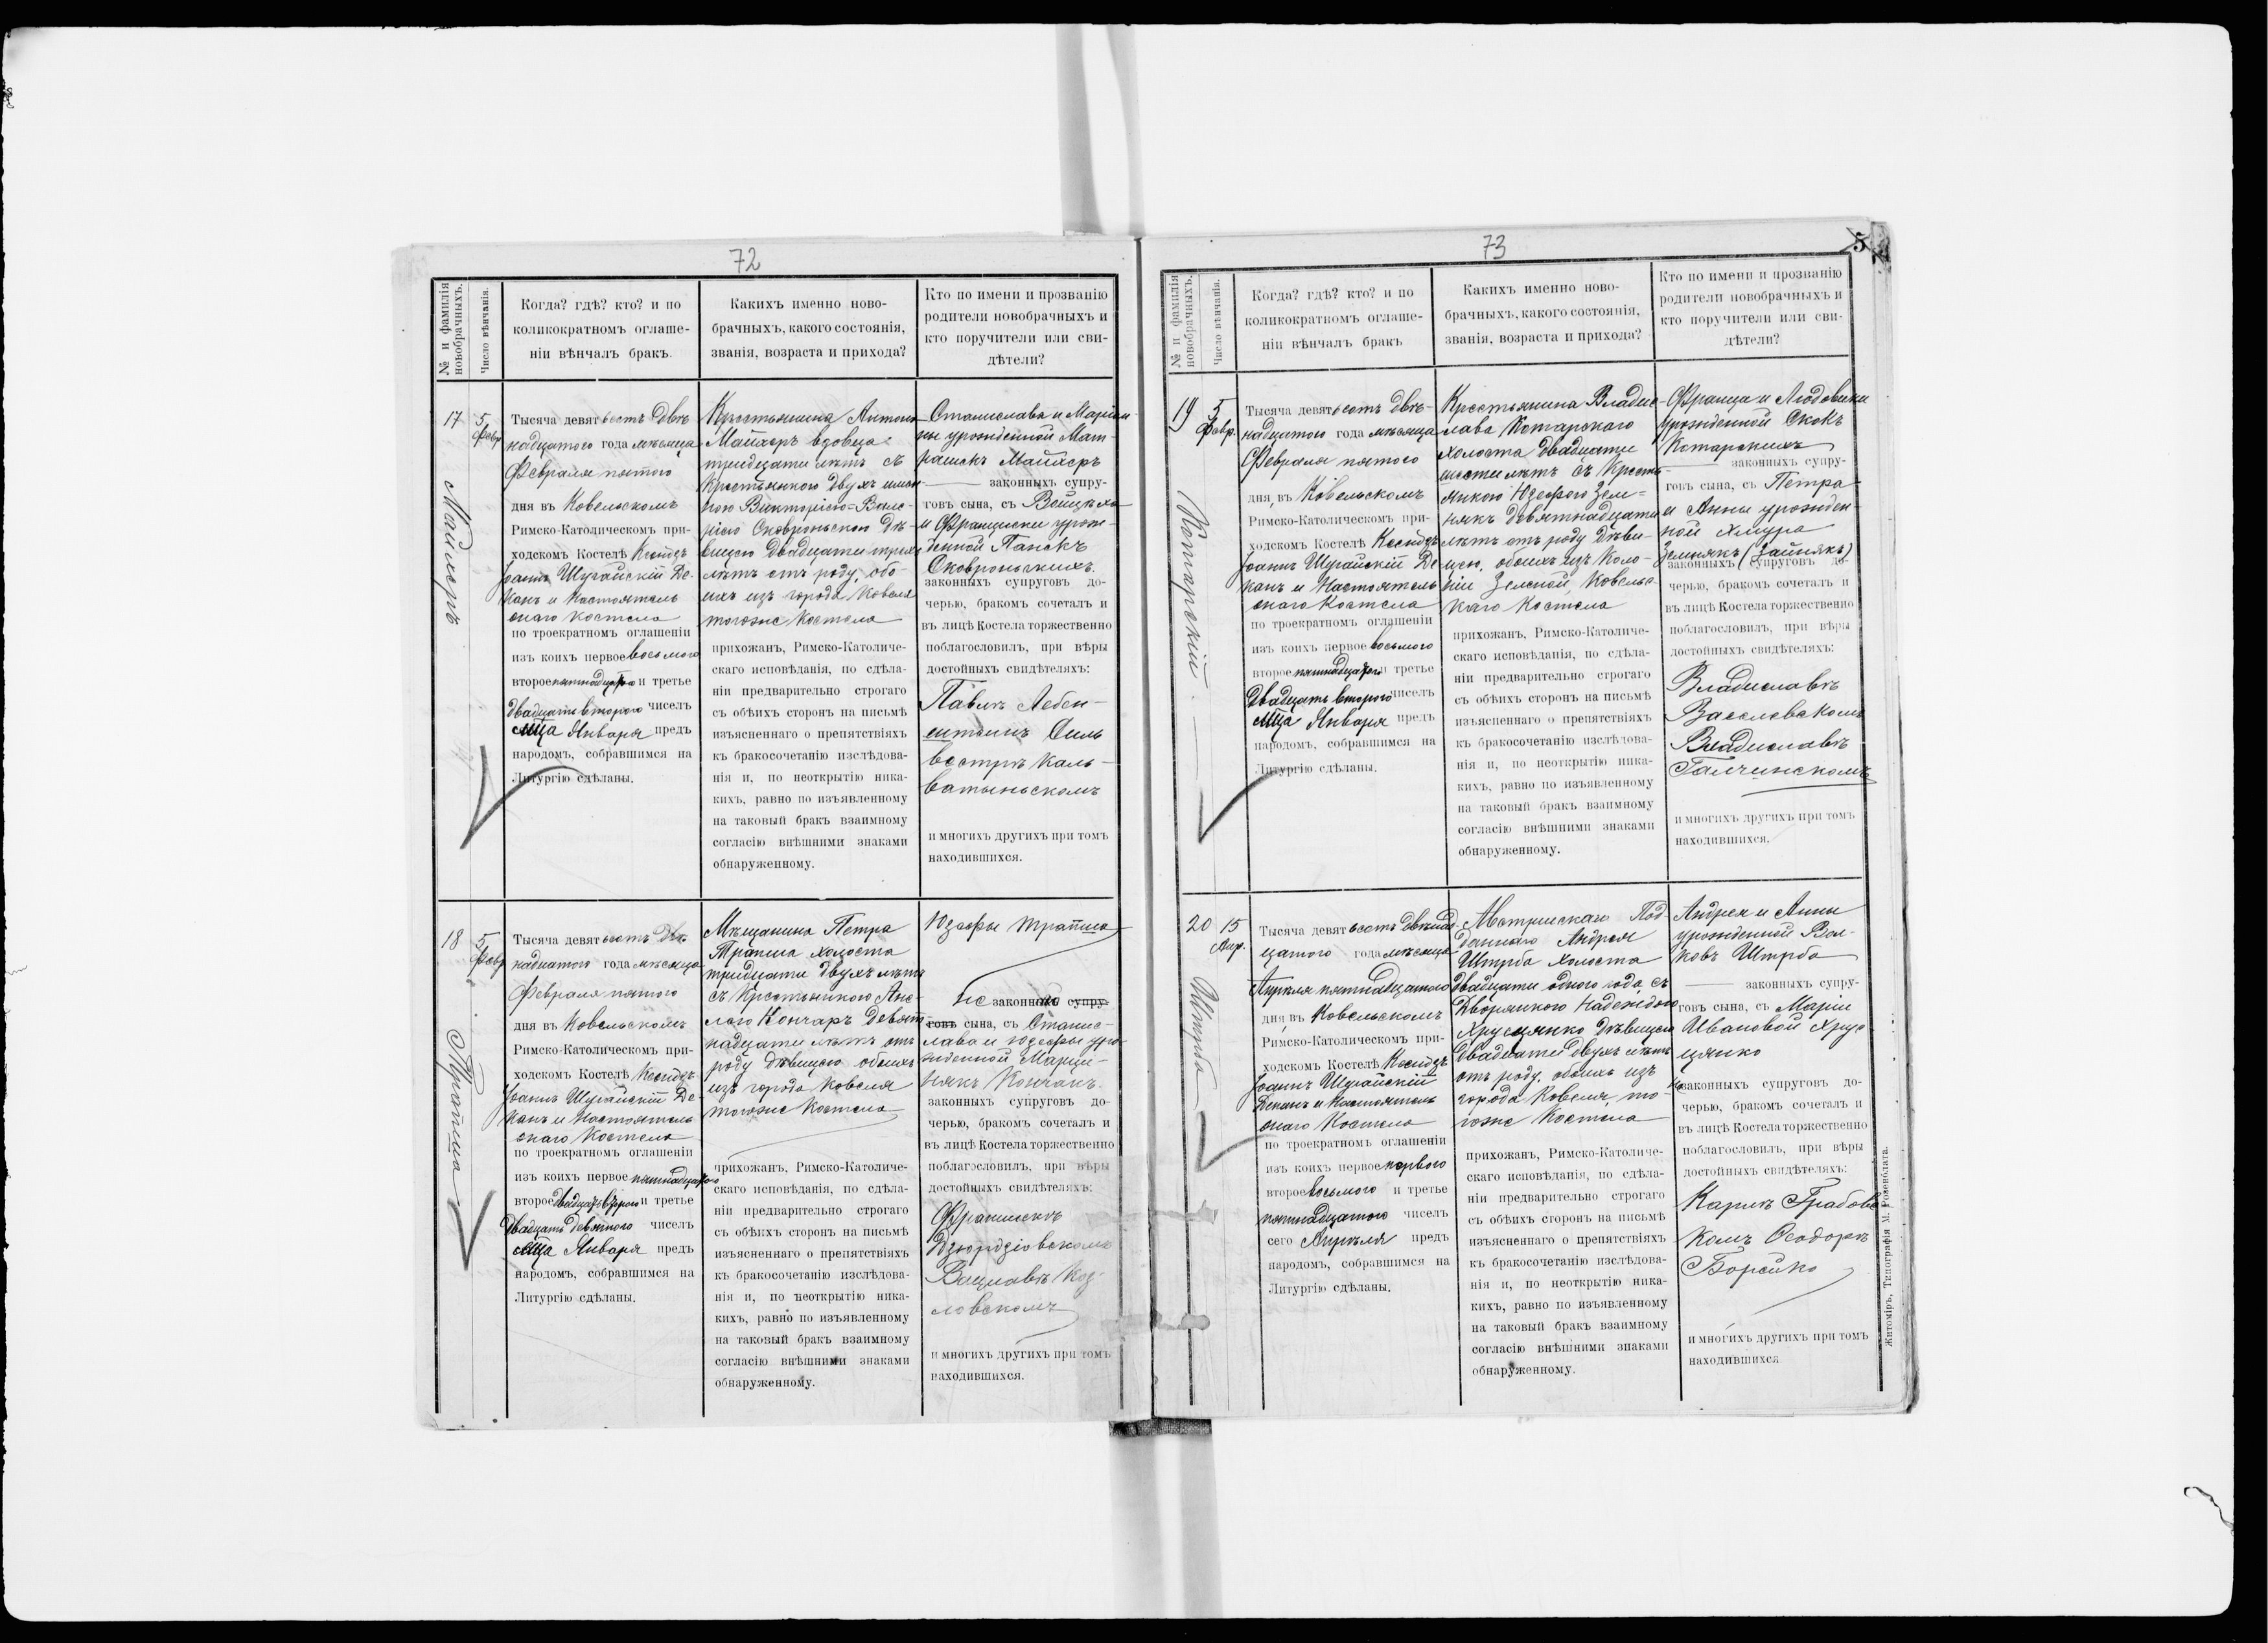 72
№ и фамилія новобрачныхъ.
Число вѣнчанія.
Когда? гдѣ? кто? и по
коликократномъ оглаше-
ніи вѣнчалъ бракъ.
Какихъ именно ново-
брачныхъ, какого состоянія,
званія, возраста и прихода?
Кто по имени и прозванію
родители новобрачныхъ и
кто поручители или сви-
дѣтели?
17
5 Февр
Майхеръ
Тысяча девятьсотъ двѣ
надцатого года мѣсяца
Февраля пятого
дня въ Ковельскомъ
Римско-Католическомъ при-
ходскомъ Костелѣ Ксендзъ
Іоаннъ Шурайскій Де-
канъ и Настоятель
онаго Костела
по троекратномъ оглашеніи
изъ коихъ первое восьмого
второе пятнадцатого и третье
двадцать второго чиселъ
мѣсяца Января предъ
народомъ, собравшимся на
Литургію сдѣланы.
Крестьянина Антона
Майхеръ вдовца
тридцати лѣтъ съ
Крестьянкою двухъ имен
ною Викторіею-Вале-
ріею Сковроньскою дѣ-
вицею двадцати трехъ
лѣтъ отъ роду, обо-
ихъ изъ города Ковеля
тогоже Костела
прихожанъ, Римско-Католиче-
скаго исповѣданія, по сдѣла-
ніи предварительно строгаго
съ обѣихъ сторонъ на письмѣ
изъясненнаго о препятствіяхъ
къ бракосочетанію изслѣдова-
нія и, по неоткрытію ника-
кихъ, равно по изъявленному
на таковый бракъ взаимному
согласію внѣшними знаками
обнаруженному.
Станислава и Маріан-
ны урожденной Мат-
Майхеръ
законныхъ супру-
говъ сына, съ Войцѣха
и Франциски урож-
денной Панекъ
Сковроньскихъ
законныхъ супруговъ до-
черью, бракомъ сочеталъ и
въ лицѣ Костела торжественно
поблагословилъ, при вѣры
достойныхъ свидѣтеляхъ:
Павлѣ Лебен-
Силь
вестрѣ Каль-
ватыньскомъ
и многихъ другихъ при томъ
находившихся.
18
5 Февр
Трапша
Тысяча девятьсотъ двѣ
надцатого года мѣсяца
Февраля пятого
дня въ Ковельскомъ
Римско-Католическомъ при-
ходскомъ Костелѣ Ксендзъ
Іоаннъ Шурайскій Де-
канъ и Настоятель
онаго Костела
по троекратномъ оглашеніи
изъ коихъ первое пятнадцатого
второе двадцать второго и третье
двадцать девятого чиселъ
мѣсяца Января предъ
народомъ, собравшимся на
Литургію сдѣланы.
Мѣщанина Петра
Трапша холоста
тридцати двухъ лѣтъ
съ Крестьянкою Анѣ-
лею Кончаръ девят-
надцати лѣтъ отъ
роду дѣвицею обоихъ
изъ города Ковеля
тогоже Костела
прихожанъ, Римско-Католиче-
скаго исповѣданія, по сдѣла-
ніи предварительно строгаго
съ обѣихъ сторонъ на письмѣ
изъясненнаго о препятствіяхъ
къ бракосочетанію изслѣдова-
нія и, по неоткрытію ника-
кихъ, равно по изъявленному
на таковый бракъ взаимному
согласію внѣшними знаками
обнаруженному.
Юзефы Трапша
не законнаго супру-
говъ сына, съ Станис-
лава и Юзефы уро-
жденной Марци-
някъ
законныхъ супруговъ до-
черью, бракомъ сочеталъ и
въ лицѣ Костела торжественно
поблагословилъ, при вѣры
достойныхъ свидѣтеляхъ:
Францискѣ
Дзюрдзіовскомъ
Вацлавѣ Коз-
ловскомъ
и многихъ другихъ при томъ
находившихся.
73
5
№ и фамилія новобрачныхъ.
Число вѣнчанія.
Когда? гдѣ? кто? и по
коликократномъ оглаше-
ніи вѣнчалъ бракъ
Какихъ именно ново-
брачныхъ, какого состоянія,
званія, возраста и прихода?
Кто по имени и прозванію
родители новобрачныхъ и
кто поручители или сви-
дѣтели?
19
5 Февр.
Котарскій
Тысяча девятьсотъ двѣ-
надцатого года мѣсяца
Февраля пятого
дня въ Ковельскомъ
Римско-Католическомъ при-
ходскомъ Костелѣ Ксендзъ
Іоаннъ Шурайскій Де
канъ и Настоятель
онаго Костела
по троекратномъ оглашеніи
изъ коихъ первое восьмого
второе пятнадцатого и третье
двадцать второго чиселъ
мѣсяца Января предъ
народомъ, собравшимся на
Литургію сдѣланы.
Крестьянина Владис-
лава Котарского
холоста двадцати
шести лѣтъ съ Крестья-
нкою Юзефою Земе-
някъ девятнадцати
лѣтъ отъ роду дѣви-
цею, обоихъ изъ Коло-
ніи Зеленой, Ковельс-
каго Костела
прихожанъ, Римско-Католиче-
скаго исповѣданія, по сдѣла-
ніи предварительно строгаго
съ обѣихъ сторонъ на письмѣ
изъясненнаго о препятствіяхъ
къ бракосочетанію изслѣдова-
нія и, по неоткрытію ника-
кихъ, равно по изъявленному
на таковый бракъ взаимному
согласію внѣшними знаками
обнаруженному.
Франца и Людовики
урожденной Скокъ
Котарскихъ
законныхъ супру-
говъ сына, съ Петра
и Анны урожден-
ной Хмура
Земнякъ (Зайнякъ)
законныхъ супруговъ до-
черью, бракомъ сочеталъ и
въ лицѣ Костела торжественно
поблагословилъ, при вѣры
достойныхъ свидѣтеляхъ:
Владиславѣ
Василевскомъ
Владиславѣ
Галчинскомъ
и многихъ другихъ при томъ
находившихся.
20
15 Апр.
Штрба
Тысяча девятьсотъ двѣнад-
цатого года мѣсяца
Апрѣля пятнадцатого
дня въ Ковельскомъ
Римско-Католическомъ при-
ходскомъ Костелѣ Ксендзъ
Іоаннъ Шурайскій
Деканъ и Настоятель
онаго Костела
по троекратномъ оглашеніи
изъ коихъ первое перваго
второе восьмого и третье
пятнадцатого чиселъ
сего Апрѣля предъ
народомъ, собравшимся на
Литургію сдѣланы.
Австрискаго Под-
даннаго Андрея
Штрба холоста
двадцати одного года съ
Дворянкою Надеждою
Хрусцянко дѣвицею
двадцати двухъ лѣтъ
отъ роду, обоихъ изъ
города Ковеля, то-
гоже Костела
прихожанъ, Римско-Католиче-
скаго исповѣданія, по сдѣла-
ніи предварительно строгаго
съ обѣихъ сторонъ на письмѣ
изъясненнаго о препятствіяхъ
къ бракосочетанію изслѣдова-
нія и, по неоткрытію ника-
кихъ, равно по изъявленному
на таковый бракъ взаимному
согласію внѣшними знаками
обнаруженному.
Андрея и Анны
урожденной Вол-
ковъ Штрба
законныхъ супру-
говъ сына, съ Маріи
Ивановой Хрус
цянко
незаконныхъ супруговъ до-
черью, бракомъ сочеталъ и
въ лицѣ Костела торжественно
поблагословилъ, при вѣры
достойныхъ свидѣтеляхъ:
Карлѣ Грабовс
комъ Ѳеодорѣ
Борейко
и многихъ другихъ при томъ
находившихся
Житоміръ, Типографія М. Розенблата.